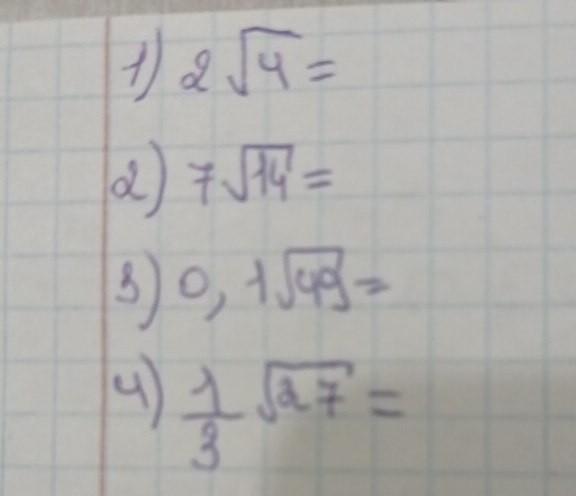 1) 2√4 =
2) 7√14 =
3) 0,1√49 =
4) 1/3 √27 =